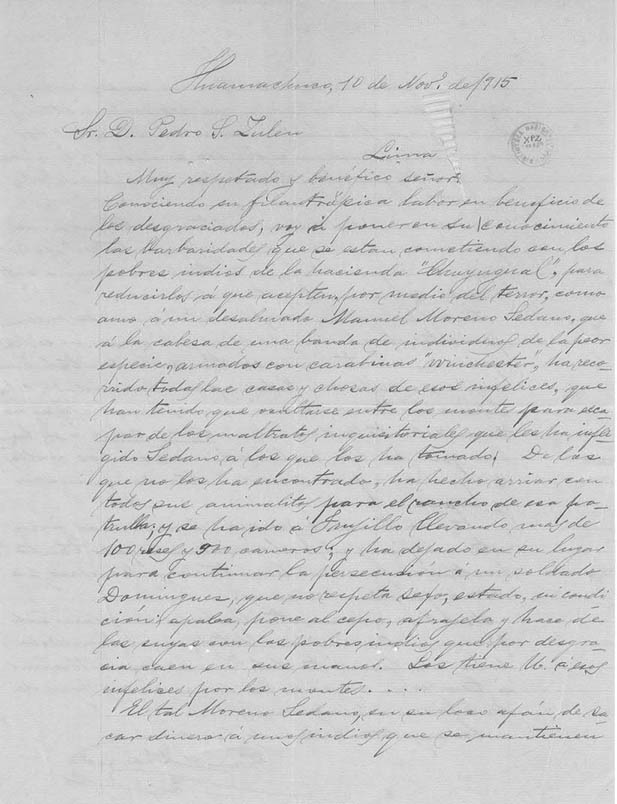 Huamachuco, 10 de Nov.º de 1915
Sr. D. Pedro S. Zulen
Lima
Muy respetado y benéfico señor:
Conociendo su filantrópica labor en beneficio de
los desgraciados, voy á poner en su conocimiento
las barbaridades que se estan cometiendo con los
pobres indios de la hacienda "Chuyugual", para
reducirlos á que acepten, por medio del terror, como
amo á un desalmado Manuel Moreno Sedano, que
á la cabesa de una banda de individuos de la peor
especie, armados con carabinas "Winchester", ha reco-
rrido todas las casas y chosas de esos infelices, que
han tenido que ocultarse entre los montes para esca-
par de los maltratos inquisitoriales que les ha infli-
gido Sedano á los que los ha tomado. De los
que no los ha encontrado, ha hecho arriar con
todos sus animalitos para el rancho de esa pa-
trulla; y se ha ido a Trujillo llevando mas de
100 reses y 900 carneros; y ha dejado en su lugar
para continuar la persecución á un soldado
Domingues, que no respeta sexo, estado, ni condi-
ción: apalea, pone al cepo, y hace de
las suyas con los pobres indios que por desgra-
cia caen en sus manos. Los tiene U. á esos
infelises por los montes....
El tal Moreno Sedano, en su loco afán de sa-
car dinero á unos indios que se mantienen